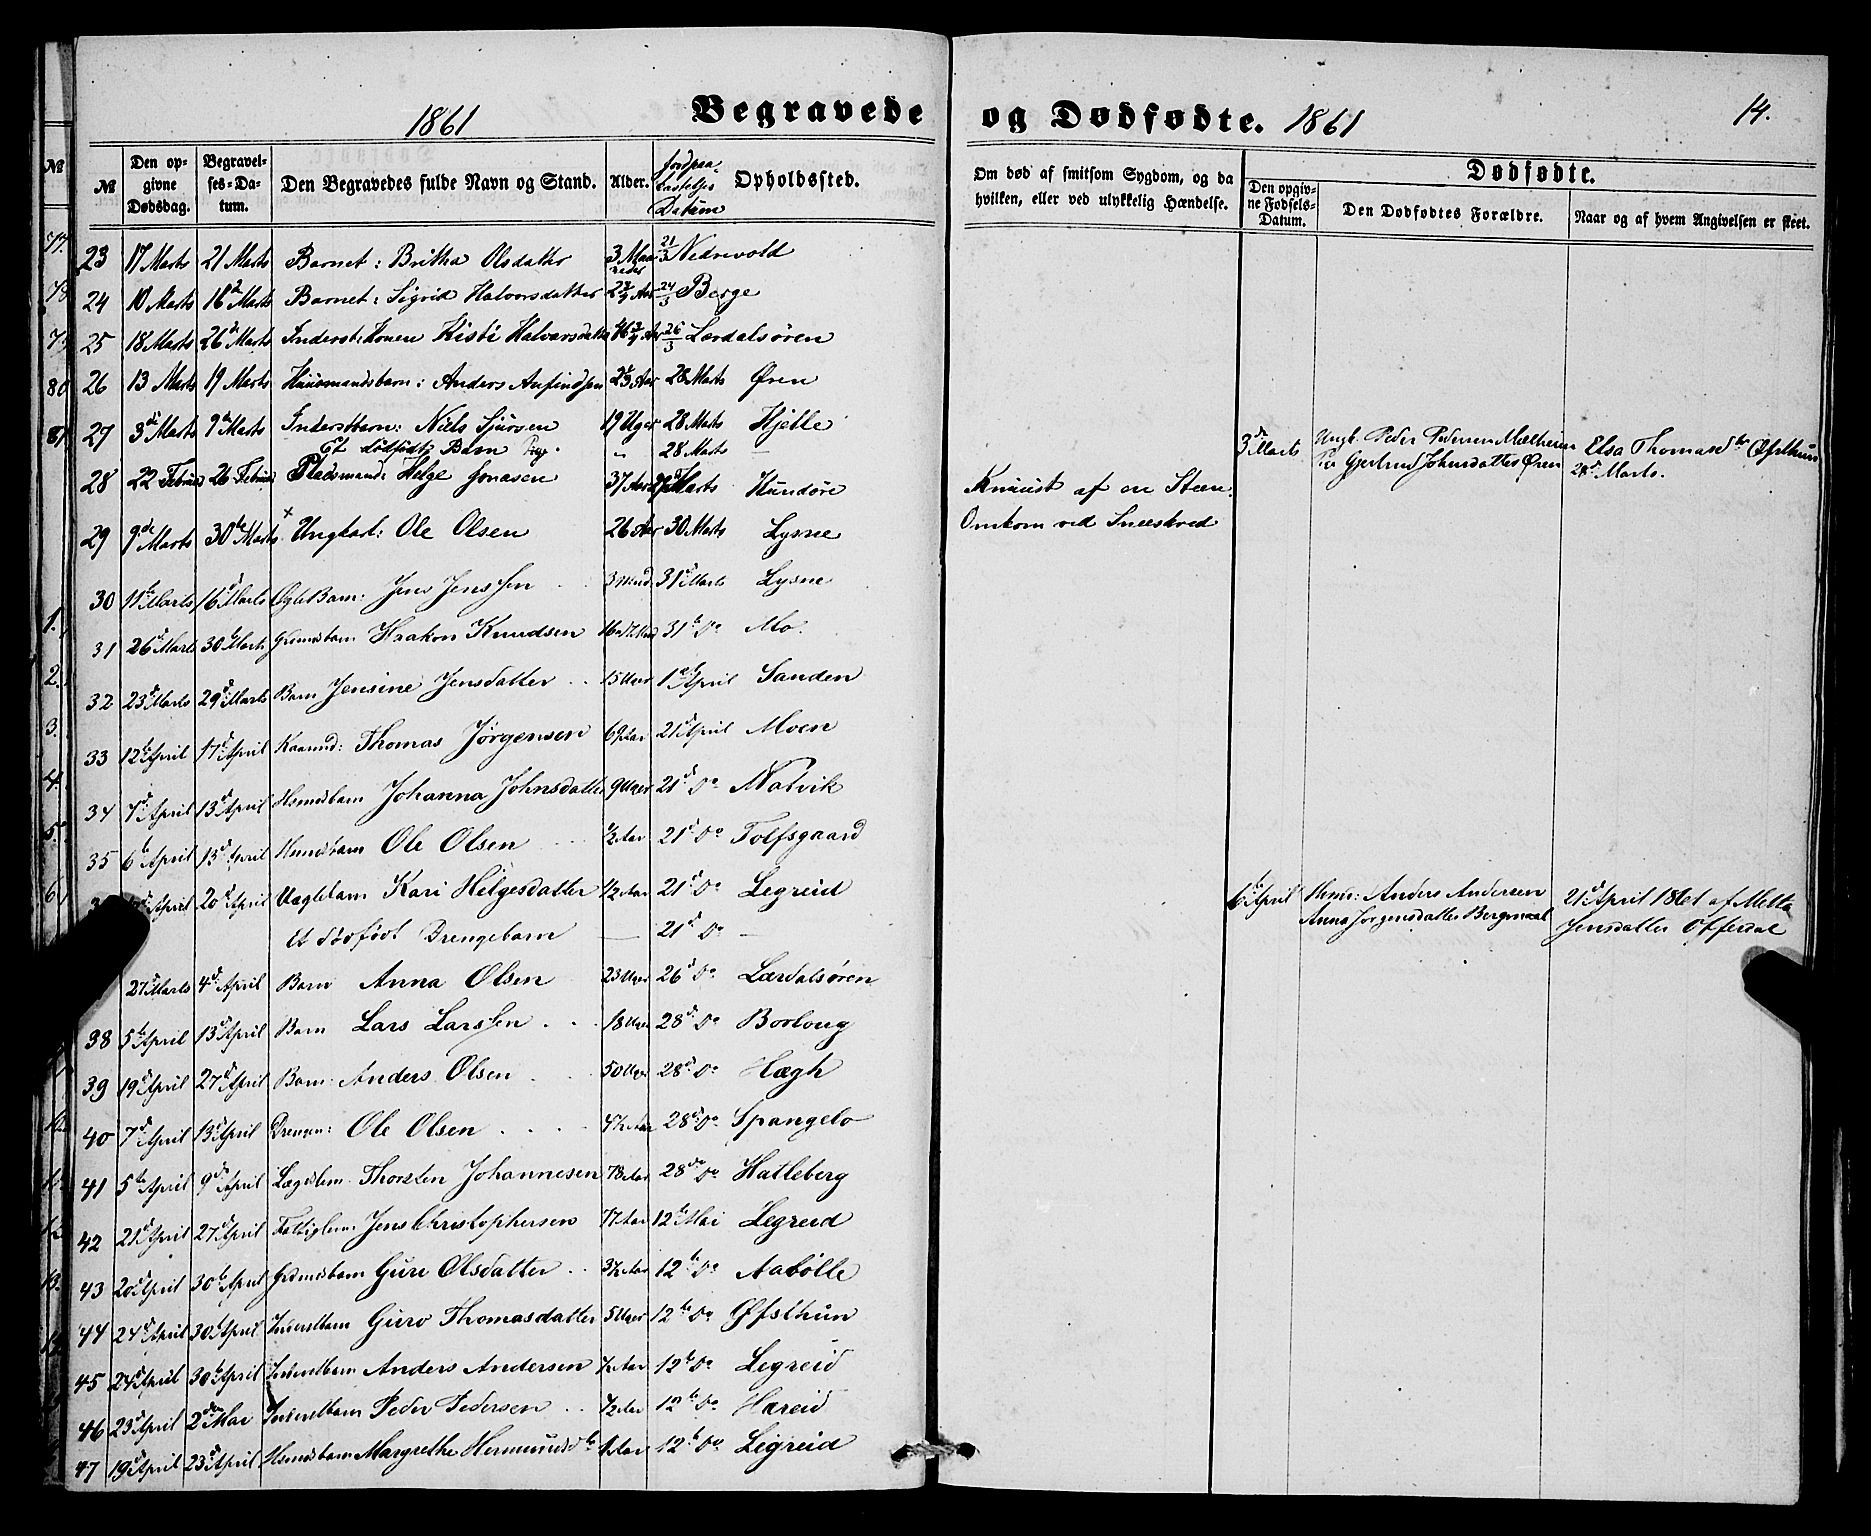 1861 Begravede og Dødfødte. 1861 14.
№ Den opgivne Dødsdag. Begravelses-Datum. Den Begravedes fulde Navn og Stand. Alder. Jordpaakastelses Datum Opholdssted. Om død af smitsom Sygdom, og da hvilken, eller ved ulykkelig Hændelse. Dødfødte. Den opgivne Fødsels-Datum. Den Dødfødtes Forældre. Naar og af hvem Angivelsen er skeet.
23 17 Marts 21 Marts Barnet: Britha Olsdatter 3 Maaneder 21/3 Nedrevold
24 10 Marts 16d Marts Barnet: Sigrid Halvorsdatter 2 3/4 Aar 24/3 Berge
25 18 Marts 26d Marts Inderst: Konen Kisti Halvarsdatter 46 3/4 Aar 26/3 Lærdalsøren
26 13 Marts 19 Marts Huusmandsbarn: Anders Anfindsen 2 2/3 Aar 28 Marts Øren
27 3d Marts 9d Marts Inderstbarn: Niels Sjursen 19 Uger 28 Marts Hjelle
Et dødfødt Barn Pige. " 28 Marts — 3d Marts Ungk. Peder Pedersen Mælheim Pie Gjertrud Johnsdatter Øren Elsa Thomasdtr Øfsthun 28d Marts.
28 22 Februar 26 Februar Pladsmand: Helge Jonasen 37 Aar Marts Hundøre Knuust af en Steen.
29 9de Marts 30te Marts + Ungkarl: Ole Olsen 26 Aar 30 Marts Lysne Omkom ved Sneeskred
30 11te Marts 16d Marts Barn: Jens Jenssen 3 Mnd. 31d Marts Lysne
31 26d Marts 30te Marts Grmdsbarn Haakon Knudsen 31te Do Mo.
32 23d Marts 29d Marts Barn Jensine Jensdatter 15 Uger 1ste April Sanden
33 12te April 17d April Kaarmd: Thomas Jørgensen 69 Aar 21d April Moen
34 7d April 13d April Hsmdsbarn Johanna Johnsdatter 9 Uger 21d Do Natvik
35 6te April 13d April Hsmdsbarn Ole Olsen 1/2 Aar 21d Do Tolfsgaard
April 20d April Uægtebarn Kari Helgesdatter 1/2 Aar 21d Do Legreid
et dødfødt Drengebarn — 21d Do — 6te April Hsmd: Anders Andersen Anna Jørgensdatter Bergmaal 21d April 1861 af Metta Jensdatter Offerdal
27d Marts 4d April Barn Anna Olsen 23 Uger 26d Do Lærdalsøren
38 5te April 13d April Barn Lars Larssen 18 Uger 28d Do Borloug
39 19d April 27d April Barn Anders Olsen 50 Uger 28d Do Hægh
40 7d April 13d April Drengen: Ole Olsen 4 1/2 Aar 28d Do Spangelo
41 5te April 9d April Lægdslem Thorsten Johannesen 78 Aar 28de Do Hatleberg
42 21d April 27d April Fattiglem: Jens Christophersen 77 Aar 12te Mai Legreid
43 20d April 30te April Grdmdsbarn Guri Olsdatter 3 1/2 Aar 12te Do Aabølle
44 24d April 30te April Inderstbarn Guro Thomasdatter 5 Uger 12te Do Øfsthun
45 24d April 30te April Inderstbarn Anders Andersen 1/2 Aar 12te Do Legreid
46 23d April 2den Mai Inderstbarn Peder Pedersen 1/2 Aar 12te Do Hæreid
47 19d April 23d April Hsmdsbarn Margrethe Hermundsdtr 1 Aar 12te Do Legreid